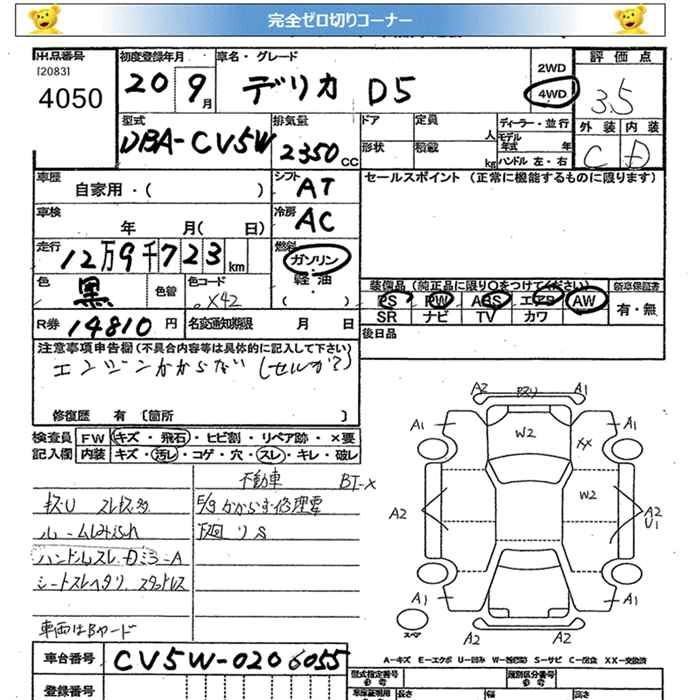 完全ゼロ切りコーナー
出品番号 初度登録年月 車名・グレード 2WD 評価点
[2083]
4050 20 9月 デリカ D5 4WD 3.5
型式 排気量 ドア 定員 人 ディーラー・並行 外装 内装
DBA-CV5W 2350cc 形状 積載 kg モデル年式 年 C D
ハンドル 左・右
車歴 自家用・( ) シフト AT セールスポイント (正常に機能するものに限ります)
車検 年 月( 日) 冷房 AC
走行 12万9千723km 燃料 ガソリン
軽油
・( )
色 黒 色替 色コード X42
装備品 (純正品に限り○をつけてください) 新車保証書
PS PW ABS エアB AW 有・無
SR ナビ TV カワ
R券 14810円 名変通知期限 月 日 後日品
注意事項申告欄 (不具合内容等は具体的に記入して下さい)
エンジンかからない (セルか?)
修復歴 有 〔箇所 〕
検査員 FW キズ・飛石・ヒビ割・リペア跡・×要
記入欄 内装 キズ・汚レ・コゲ・穴・スレ・キレ・破レ
不動車 BT-X
キズU スレ伝多 E/gかからず修理要
ルームしみ汚れ 下廻りS
ハンドルスレ
シートスレヘタリ
車両はBヤード
A2 ススリ A1
A1 W2 XX A1
A2 W2 A2
U1
A1 A1
スペア A2 A1
A-キズ E-エクボ U-凹み W-補修跡 S-サビ C-腐食 XX-交換済
車台番号 CV5W-0206055
登録番号
型式指定番号 類別区分番号
参考 長さ 幅 高さ